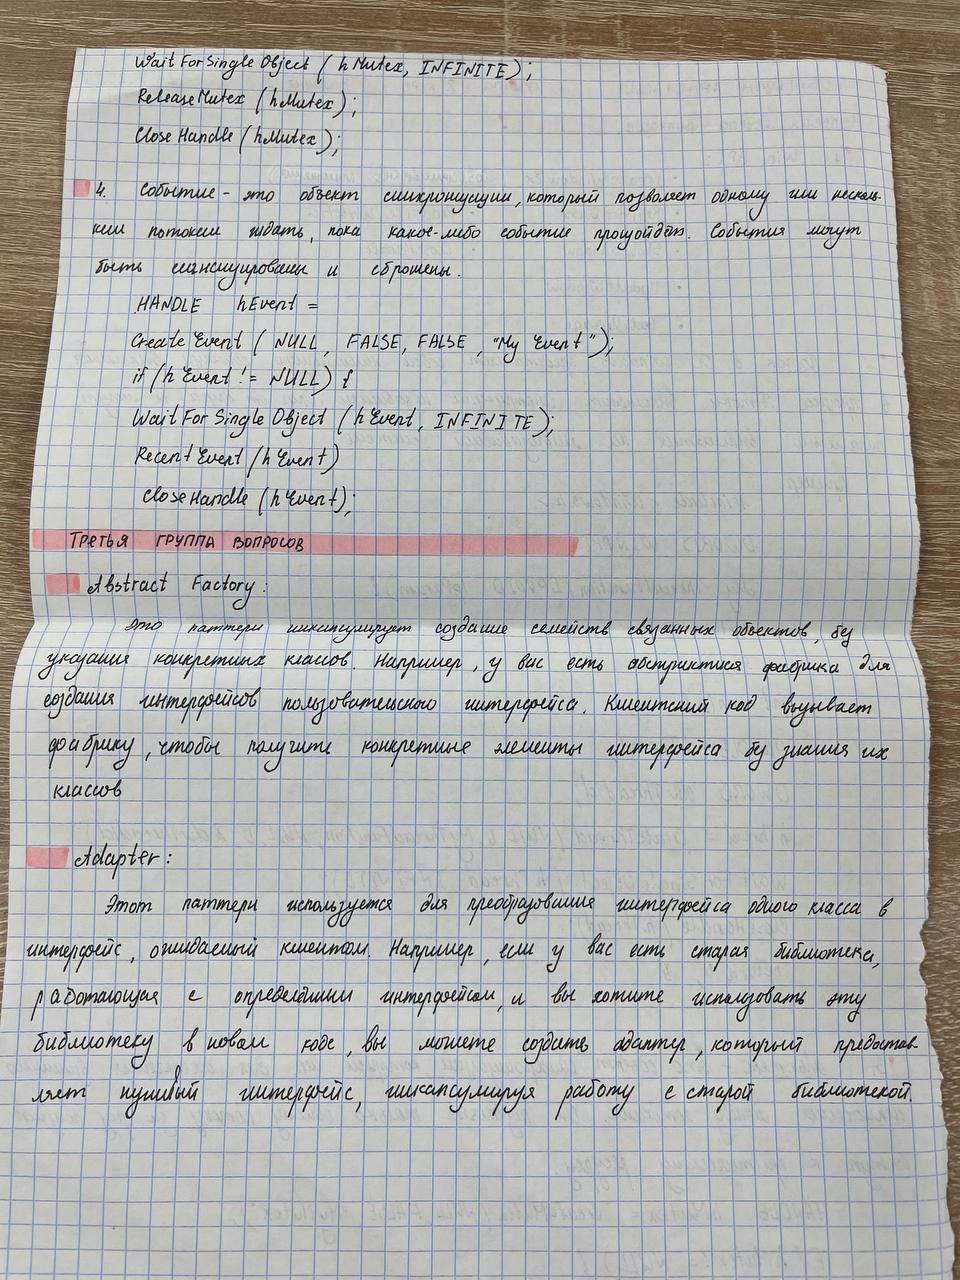 WaitForSingleObject (hMutex, INFINITE);
ReleaseMutex (hMutex);
CloseHandle (hMutex);
4. Событие - это объект синхронизации, который позволяет одному или несколь-
ким потокам ждать, пока какое-либо событие произойдёт. События могут
быть сигнализированы и сброшены.
HANDLE hEvent =
CreateEvent ( NULL, FALSE, FALSE, "My Event");
if (hEvent != NULL) {
WaitForSingleObject (hEvent, INFINITE);
RecentEvent (hEvent)
CloseHandle (hEvent);
ТРЕТЬЯ ГРУППА ВОПРОСОВ
Abstract Factory:
Это паттерн инкапсулирует создание семейств связанных объектов, без
указания конкретных классов. Например, у вас есть абстрактная фабрика для
создания интерфейсов пользовательского интерфейса. Клиентский код вызывает
фабрику, чтобы получить конкретные элементы интерфейса без знания их
классов
Adapter:
Этот паттерн используется для преобразования интерфейса одного класса в
интерфейс, ожидаемый клиентом. Например, если у вас есть старая библиотека,
работающая с определённым интерфейсом, и вы хотите использовать эту
библиотеку в новом коде, вы можете создать адаптер, который предостав-
ляет нужный интерфейс, инкапсулируя работу с старой библиотекой.